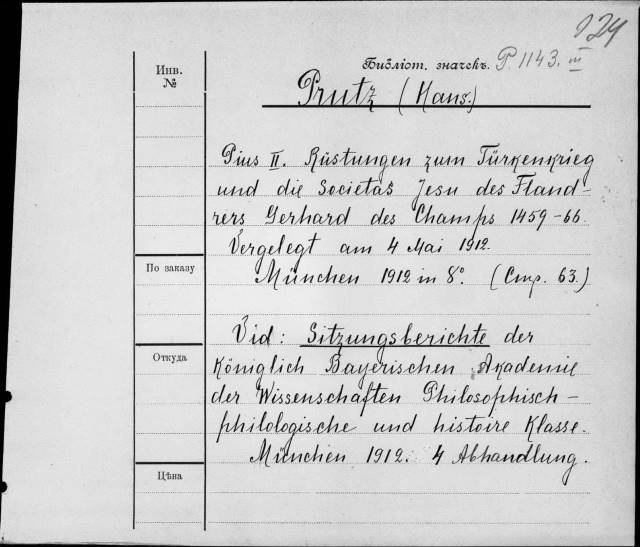 124
Библіот. значекъ. P. 1143. III
Инв.
№
Prutz (Hans.)
Pius II. Rüstungen zum Türkenkrieg
und die Societas Jesu des Fland-
rers Gerhard des Champs 1459-66.
Vergelegt am 4 Mai 1912.
По заказу
München 1912 in 8°. (Стр. 63.)
Vid: Sitzungsberichte der
Откуда
Königlich Bayerischen Akademie
der Wissenschaften Philosophisch-
philologische und histoire Klasse.
München 1912. 4 Abhandlung.
Цѣна